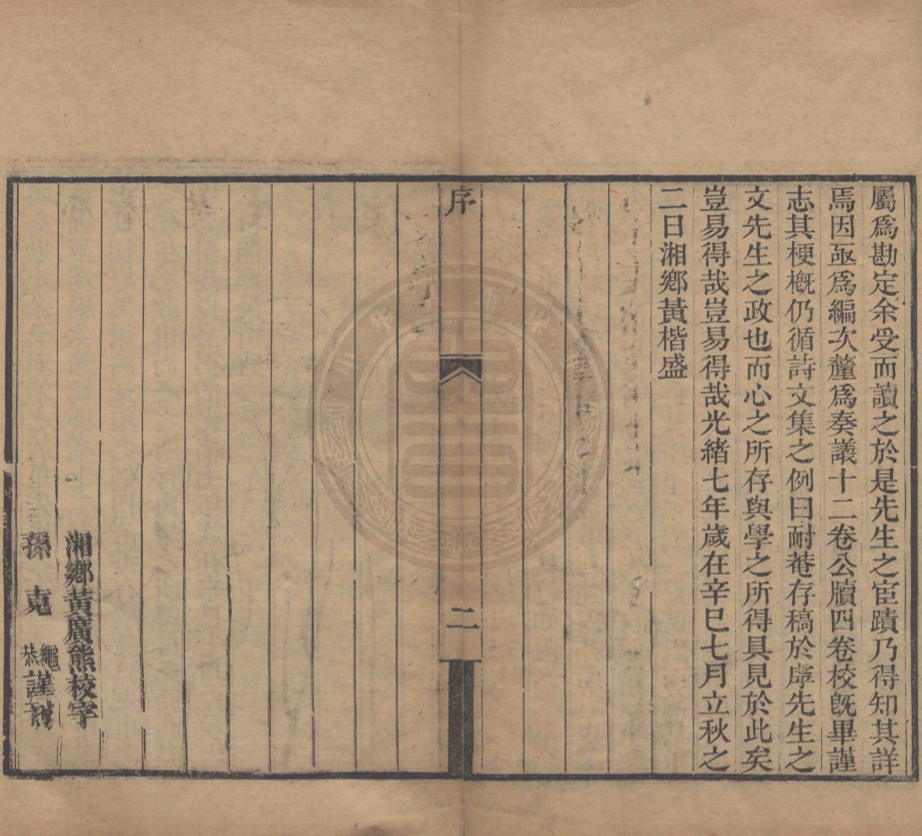 屬爲勘定余受而讀之於是先生之宦蹟乃得知其詳
焉因亟爲編次釐爲奏議十二卷公牘四卷校旣畢謹
志其梗槪仍循詩文集之例曰耐菴存稿於虖先生之
文先生之政也而心之所存與學之所得具見於此矣
豈易得哉豈易得哉光緒七年歲在辛巳七月立秋之
二日湘鄉黃楷盛
序
二
湘鄉黃廣熊校字
孫克繩恭謹刊